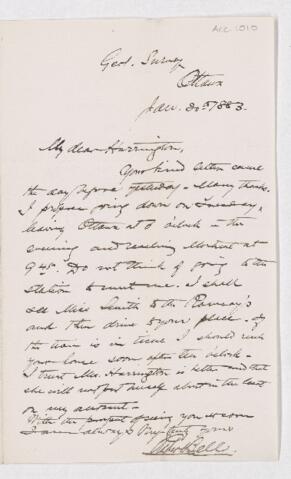 Acc. 1010
Geol. Survey
Ottawa
Jan. 1883.
My dear Harrington,
Your kind letter came
the day before yesterday - Many thanks.
I propose going down on Tuesday,
leaving Ottawa at 5 o'clock in the
evening and reaching Montreal at
9.45. Do not think of going to the
Station to meet me. I shall
see Miss Smith to the Ramsay's
and then drive to your place. If
the train is in time I should reach
your house soon after ten o'clock -
I trust Mrs. Harrington is better and that
she will not put herself about in the least
on my account -
With the prospect of seeing you so soon
I am always Very truly yours
Bell.